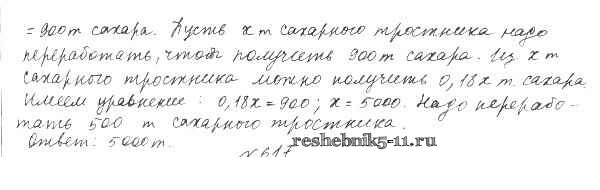 = 900т сахара. Пусть x т сахарного тростника надо
переработать, чтоб получить 900т сахара. Из x т
сахарного тростника можно получить 0,18x т. сахара
Имеем уравнение: 0,18x = 900; x = 5000. Надо перерабо-
тать 500 т сахарного тростника.
Ответ: 5000т.
reshebnik5-11.ru
№617